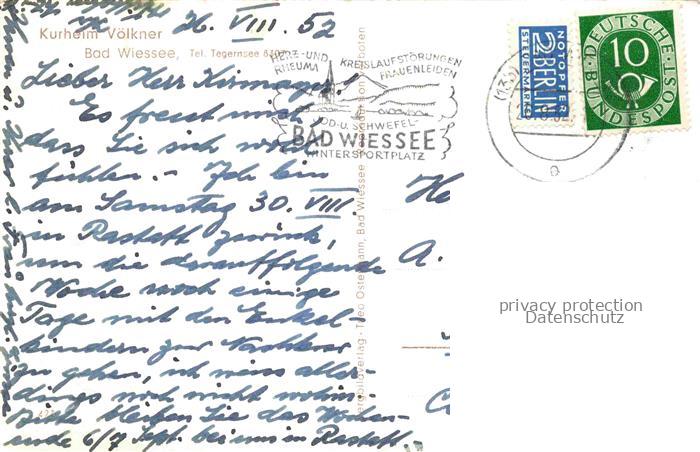 26. VIII. 52
Kurheim Völkner
Bad Wiessee, Tel. Tegernsee
Lieber Herr Kirmayer!
Es freut mich,
dass Sie sich wohl
fühlen. - Ich bin
am Samstag 30. VIII.
in Rastatt zurück,
um die darauffolgende
Woche noch einige
Tage mit den Enkel-
kindern zur Nachkur
zu gehen, ich weiss aller-
dings noch nicht wohin.
Bitte bleiben Sie das Wochen-
ende 6/7 Sept. bei uns in Rastatt.
HERZ- UND KREISLAUFSTÖRUNGEN
RHEUMA FRAUENLEIDEN
JOD- U. SCHWEFEL-
BAD WIESSEE
WINTERSPORTPLATZ
NOTOPFER
2 BERLIN
STEUERMARKE
DEUTSCHE
10
BUNDESPOST
(13
a
Theo Ostermann, Bad Wiessee
He
A.
privacy protection
Datenschutz